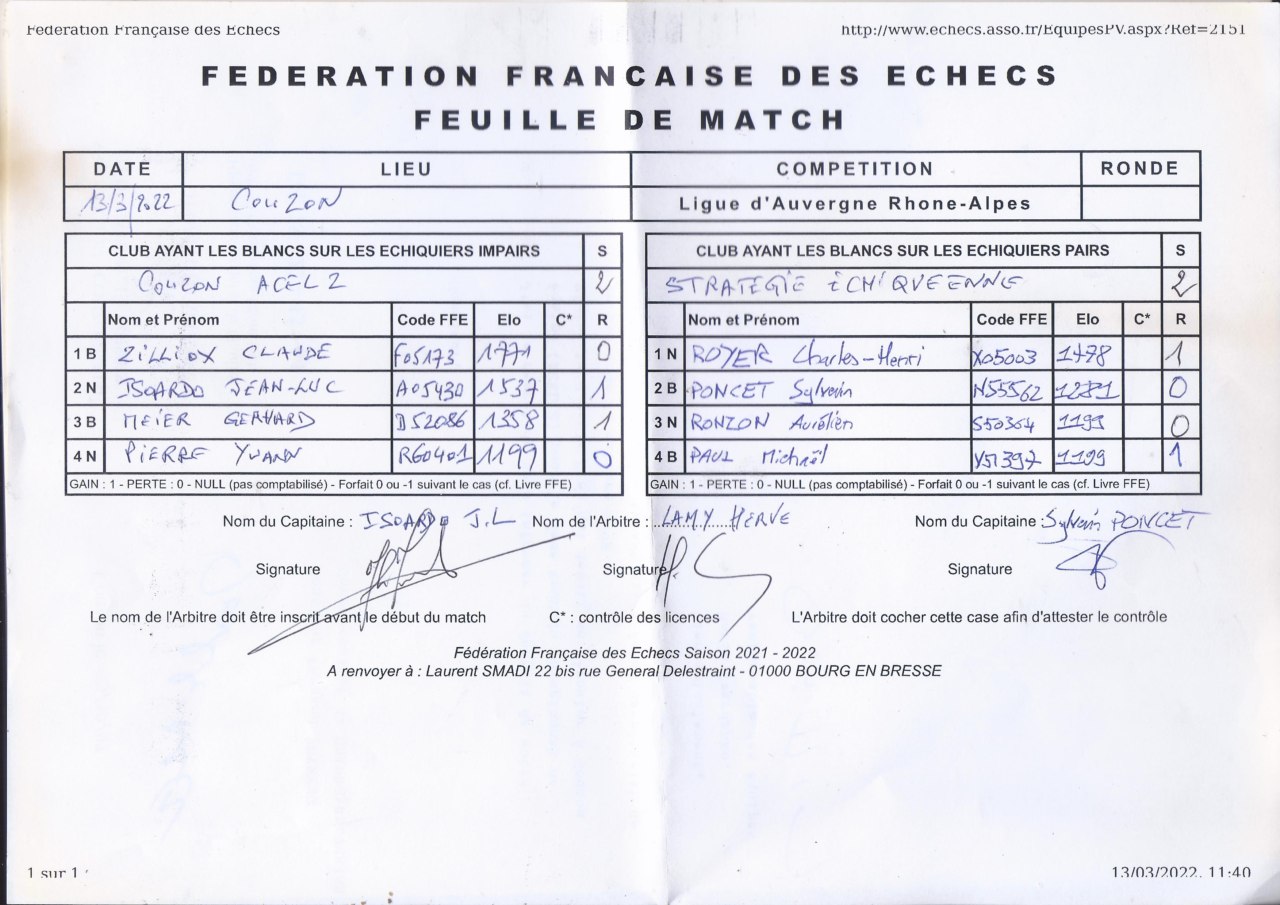 Federation Française des Echecs http://www.echecs.asso.fr/EquipesPV.aspx?Ref=2151
FEDERATION FRANCAISE DES ECHECS
FEUILLE DE MATCH
DATE LIEU COMPETITION RONDE
13/3/2022 COUZON Ligue d'Auvergne Rhone-Alpes
CLUB AYANT LES BLANCS SUR LES ECHIQUIERS IMPAIRS S CLUB AYANT LES BLANCS SUR LES ECHIQUIERS PAIRS S
COUZON ACEL 2 2 STRATEGIE ECHIQUEENNE 2
Nom et Prénom Code FFE Elo C* R Nom et Prénom Code FFE Elo C* R
1 B ZILLIOX CLAUDE F05173 1771 0 1 N ROYER Charles-Henri X05003 1478 1
2 N ISOARDO JEAN-LUC A05430 1537 1 2 B PONCET Sylvain N55562 1281 0
3 B MEIER GERHARD D52086 1358 1 3 N RONZON Aurélien S50364 1199 0
4 N PIERRE YVANN R60401 1199 0 4 B PAUL Michaël Y51397 1199 1
GAIN : 1 - PERTE : 0 - NULL (pas comptabilisé) - Forfait 0 ou -1 suivant le cas (cf. Livre FFE) GAIN : 1 - PERTE : 0 - NULL (pas comptabilisé) - Forfait 0 ou -1 suivant le cas (cf. Livre FFE)
Nom du Capitaine : ISOARDO J.L Nom de l'Arbitre : LAMY HERVE Nom du Capitaine : Sylvain PONCET
Signature Signature Signature
Le nom de l'Arbitre doit être inscrit avant le début du match C* : contrôle des licences L'Arbitre doit cocher cette case afin d'attester le contrôle
Fédération Française des Echecs Saison 2021 - 2022
A renvoyer à : Laurent SMADI 22 bis rue General Delestraint - 01000 BOURG EN BRESSE
1 sur 1 13/03/2022, 11:40